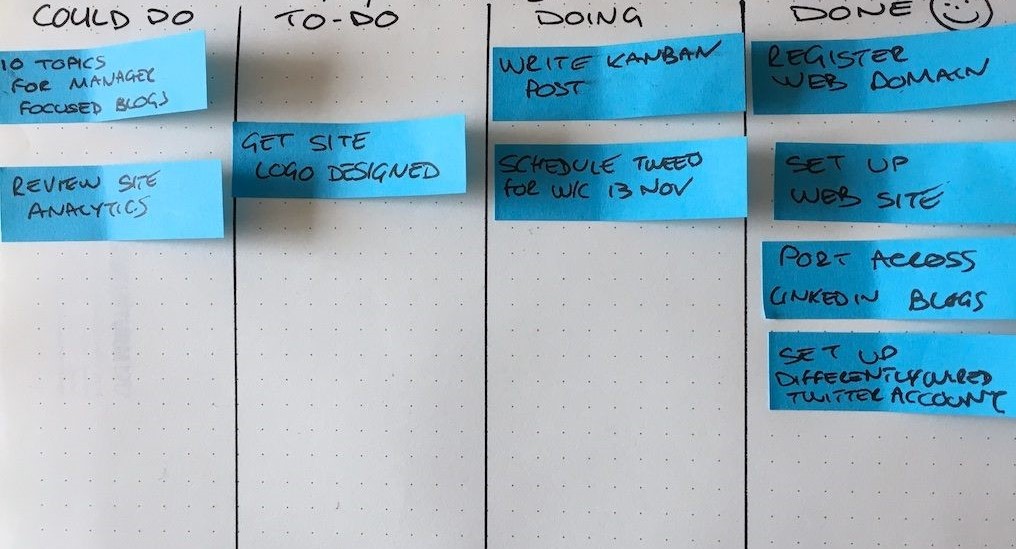 COULD DO
10 TOPICS
FOR MANAGER
FOCUSED BLOGS
REVIEW SITE
ANALYTICS
TO-DO
GET SITE
LOGO DESIGNED
DOING
WRITE KANBAN
POST
SCHEDULE TWEED
FOR W/C 13 NOV
DONE
REGISTER
WEB DOMAIN
SET UP
WEB SITE
PORT ACROSS
LINKEDIN BLOGS
SET UP
DIFFERENTLYWIRED
TWITTER ACCOUNT